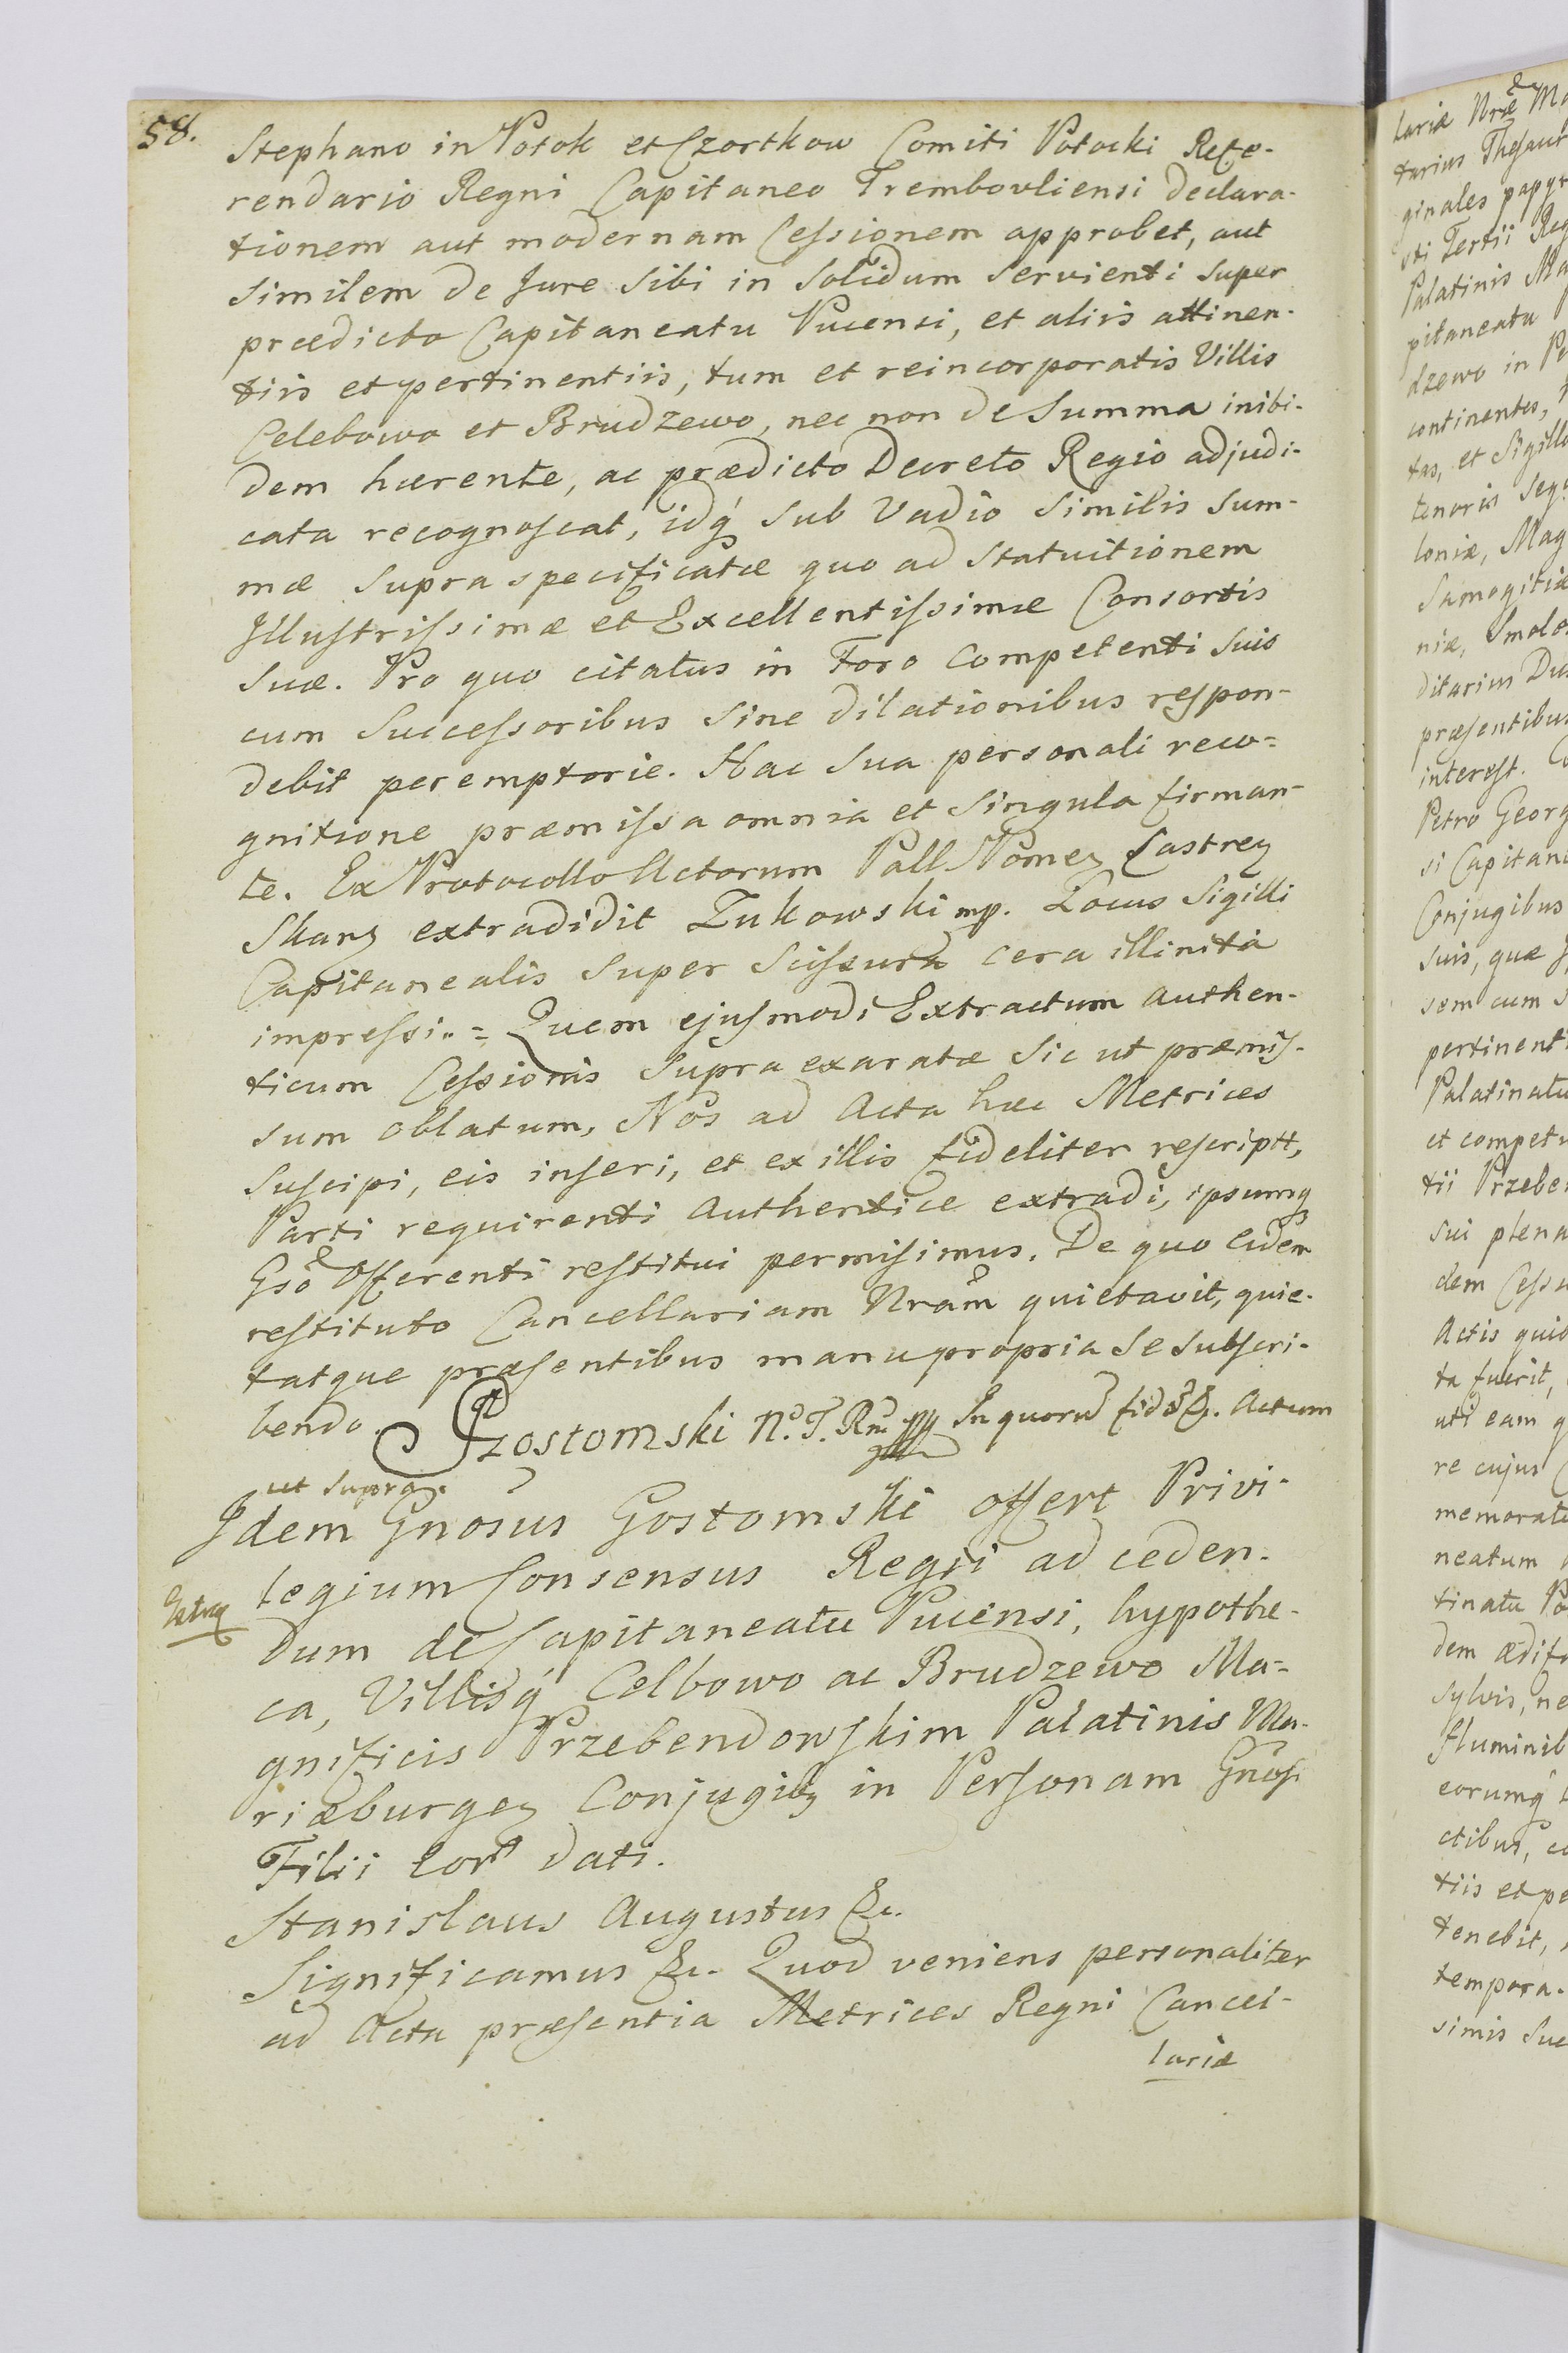 58.
Stephano in Potok et Czortkow Comiti Potocki Refe-
rendario Regni Capitaneo Trembovliensi declara-
tionem aut modernam Cessionem approbet, aut
similem de Jure sibi in solidum servienti super
prædicto Capitaneatu Pucensi, et aliis attinen-
tiis et pertinentiis, tum et reincorporatis Villis
Celebowo et Brudzewo, nec non de Summa inibi-
dem hærente, ac prædicto Decreto Regio adjudi-
cata recognoscat, idq́ sub Vadio similis Sum-
mæ supra specificatæ quo ad statuitionem
Illustrissimæ et Excellentissimæ Consortis
suæ. Pro quo citatus in Foro Competenti suis
cum Successoribus sine dilationibus respon-
debit peremptorie. Hac sua personali reco-
gnitione præmissa omnia et singula firman-
te. Ex Protocollo Actorum Pall Pomez Castrez
Skarz extradidit Zukowski mp. Locus Sigilli
Capitanealis super Scissura cera illinita
impressi.. = Quem ejusmodi Extractum Authen-
ticum Cessionis supra exaratæ sic ut præmis-
sum oblatum, Nos ad Acta hæc Metrices
suscipi, eis inseri, et ex illis fideliter rescriptt,
Parti requirenti authentice extradi, ipsumq
Gso Offerenti restitui permisimus. De quo eidem
restituto Cancellariam Nram quietavit, quie-
tatque præsentibus manu propria se subscri-
bendo. Gostomski N. T. R. mp In quorū fidē &. Actum
ut supra.
Idem Gnosus Gostomski offert Privi-
legium Consensus Regii ad ceden-
dum de Capitaneatu Pucensi, hypothe-
ca, Villisq́ Celbowo ac Brudzewo Ma-
gnificis Przebendowskim Palatinis Ma-
riæburgez Conjugibz in Personam Gnosi
Filii eor dati.
Stanislaus Augustus &c.
Significamus &c. Quod veniens personaliter
ad Acta præsentia Metrices Regni Cancel-
lariæ
lariæ Nræ
tarius Thesaur
ginales papyr
sti Tertii Reg
Palatinis Ma
pitaneatu P
dzewo in P
continentes,
tas, et Sigillo
tenoris sequ
loniæ, Mag
Samogitiæ
niæ, Smolo
ditarius Du
præsentibus
interest.
Petro Georg
si Capitan
Conjugibus
suis, quæ
sem cum s
pertinenti
Palatinatu
et compet
tii Przebe
sui plena
dem Cess
Actis quib
ta fuerit,
uti eam q
re cujus
memorat
neatum
tinatu Po
dem ædif
sylvis, ne
fluminib
eorumq́
ctibus, c
tiis et pe
tenebit,
tempora.
simis Suc